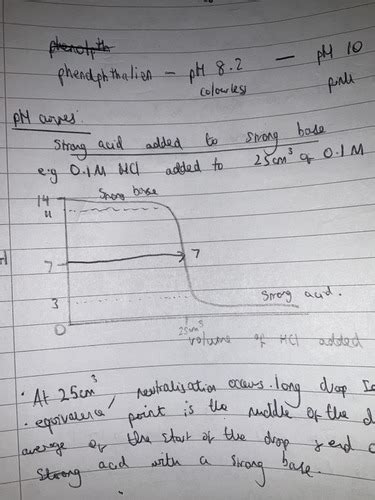 phenolpth
phenolphthalien - pH 8.2 - pH 10
colourless pink
pH curves:
Strong acid added to strong base
e.g 0.1M HCl added to 25cm³ of 0.1M
14
11
Strong base
7
7
3
Strong acid.
0
25cm³
volume of HCl added
• At 25cm³, neutralisation occurs. long drop
• equivalence point is the middle of the
average of the start of the drop & end
Strong acid with a strong base.